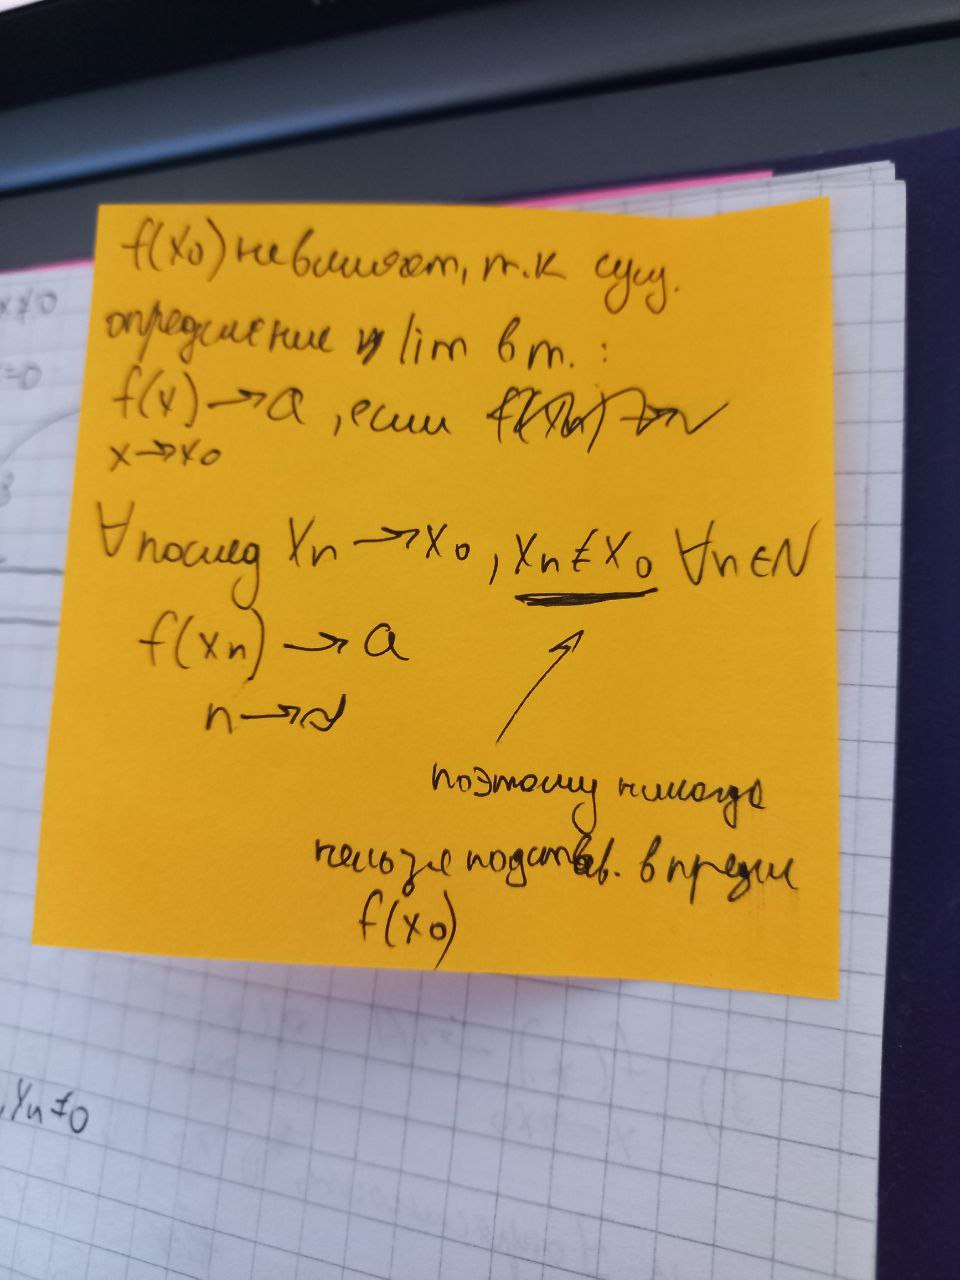 f(x₀) не влияет, т.к сущ.
определение lim в т. :
f(x) → a , если
x → x₀
∀ послед xₙ → x₀ , xₙ ≠ x₀ ∀n ∈ N
f(xₙ) → a
n → ∞
поэтому никогда
нельзя подстав. в предел
f(x₀)
x ≠ 0
=0
3
, yₙ ≠ 0